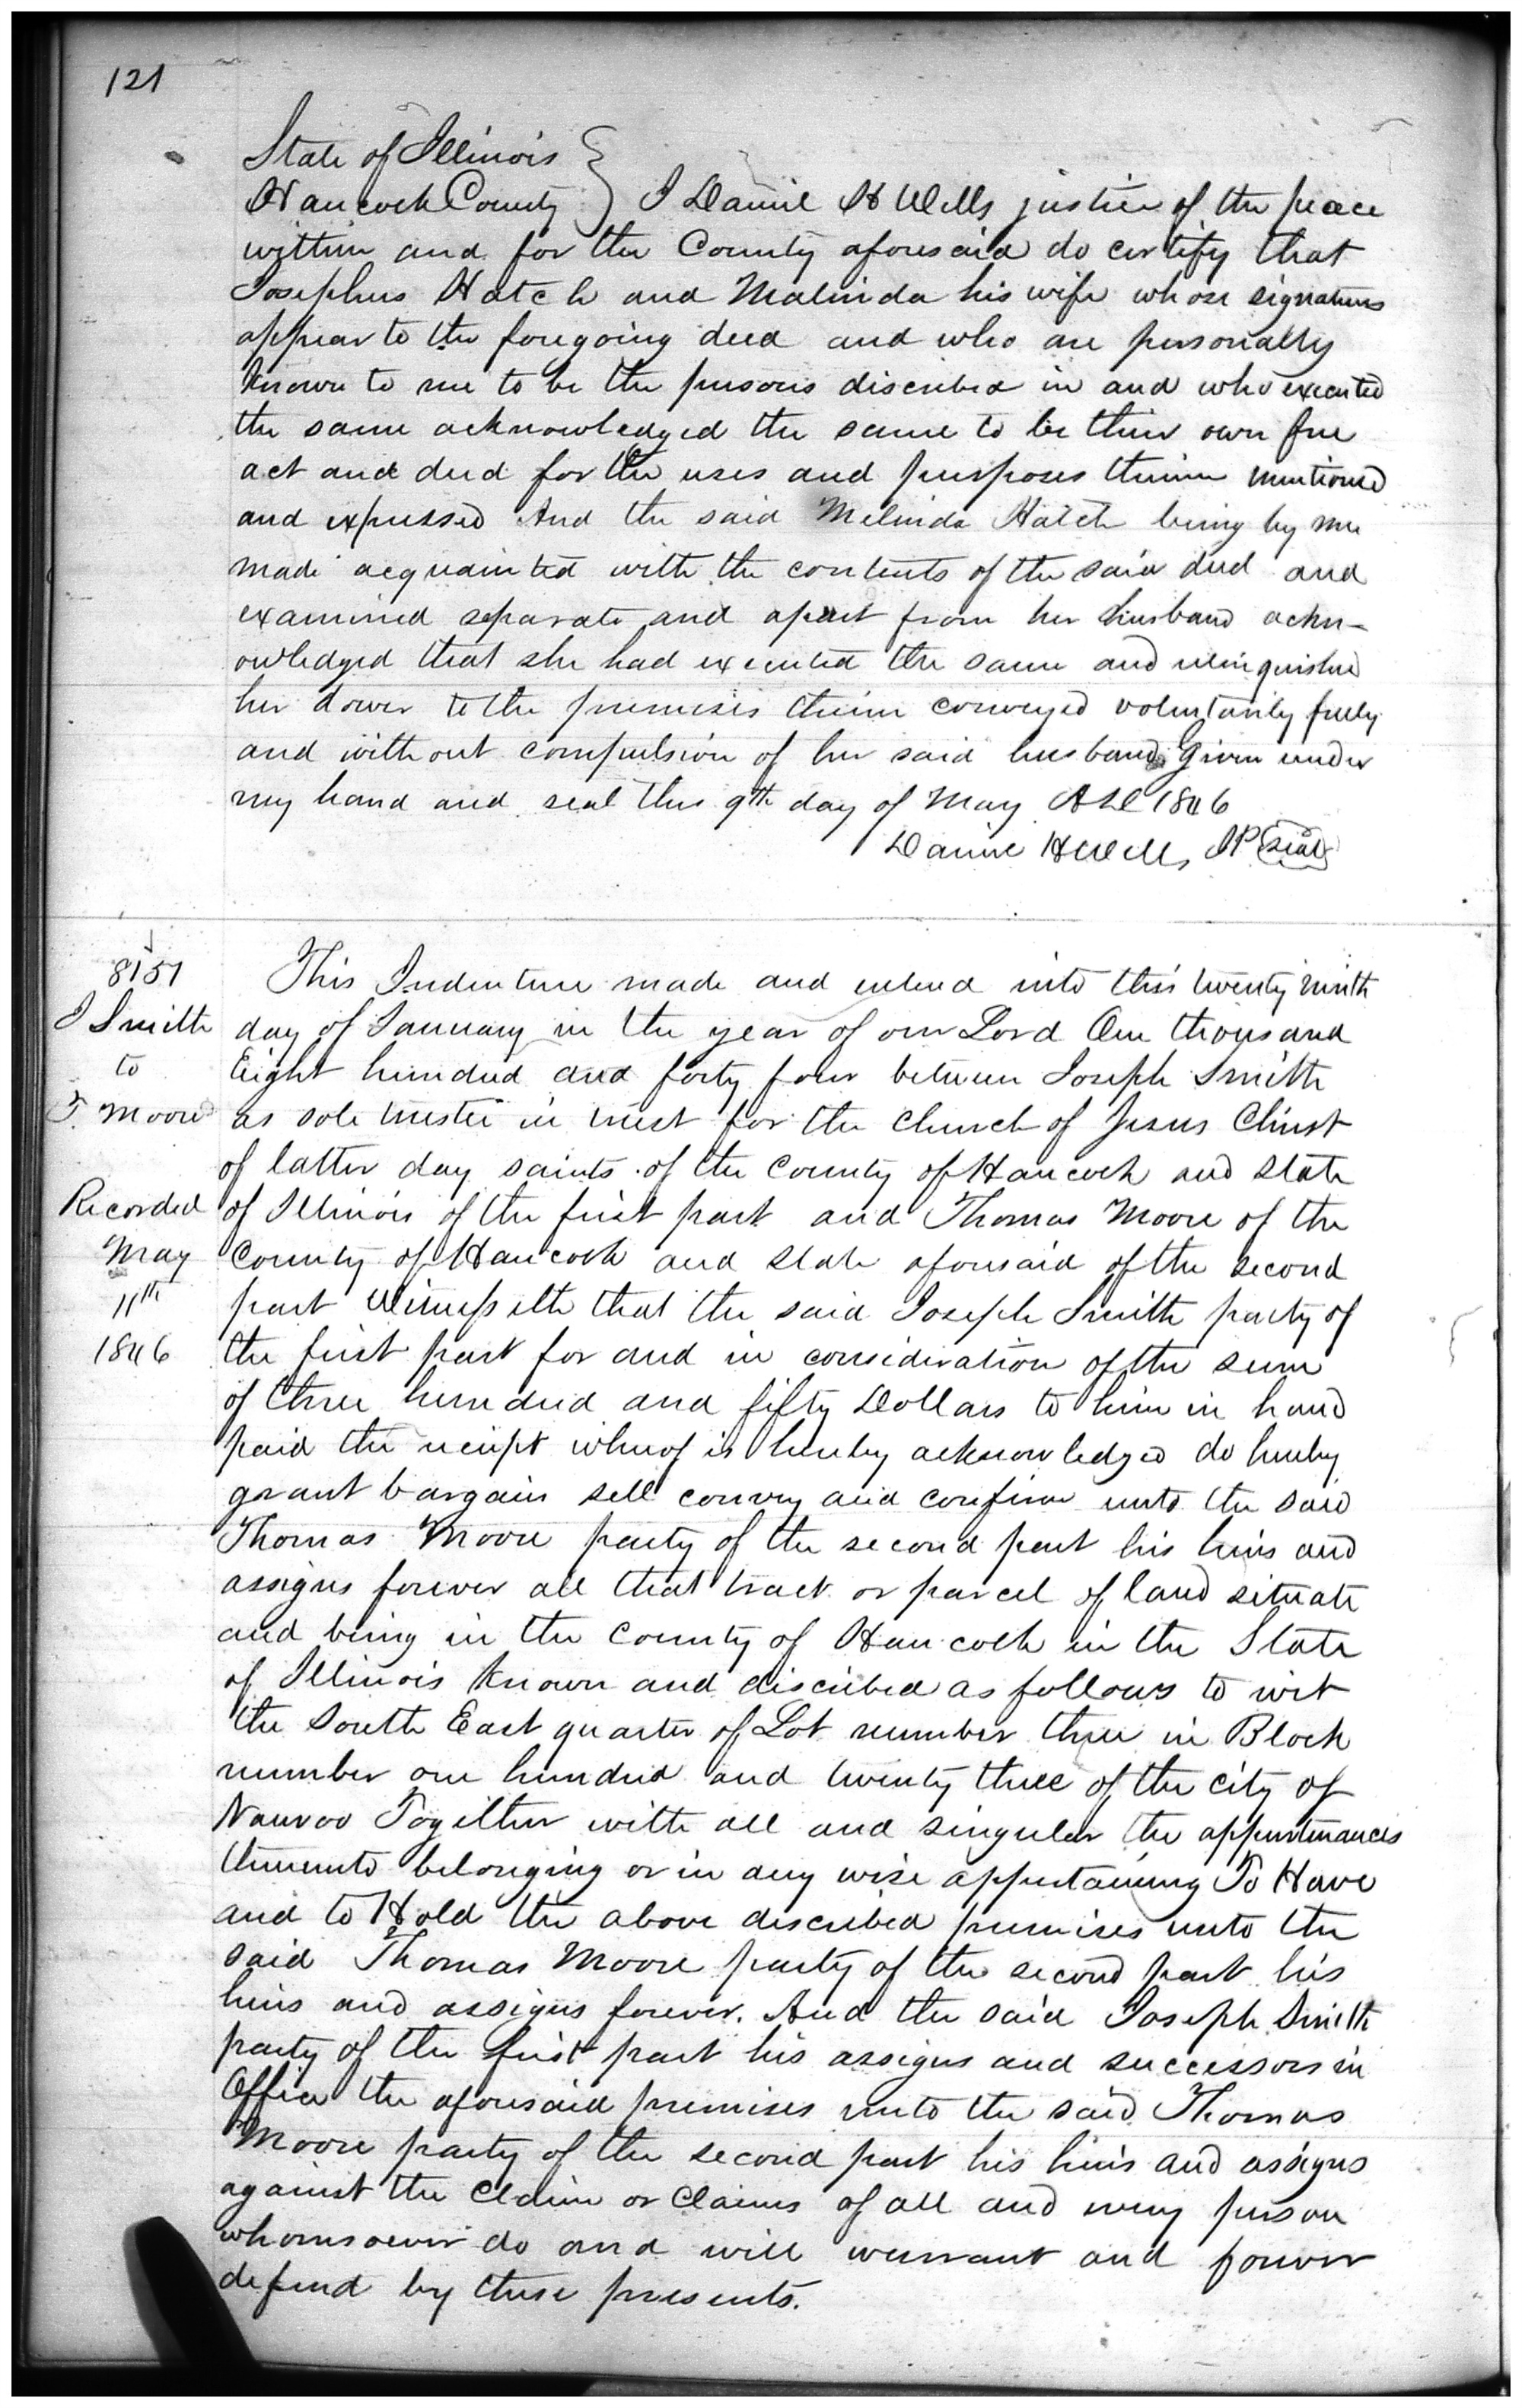 121
State of Illinois }
Hancock County } I Daniel H Wells justice of the peace
within and for the County aforesaid do certify that
Josephus Hatch and Malinda his wife whose signatures
appear to the foregoing deed and who are personally
known to me to be the persons discribed in and who executed
the same acknowledged the same to be their own free
act and deed for the uses and purposes therein mentioned
and expressed And the said Melinda Hatch being by me
made acquainted with the contents of the said deed and
examined separate and apart from her husband ackn-
owledged that she had executed the same and relinquished
her dower to the premises therein conveyed voluntarily freely
and without compulsion of her said husband Given under
my hand and seal this 9th day of May AD 1846
Daniel H Wells JP (seal)
8151
J Smith
to
T. Moore
Recorded
May
11th
1846
This Indenture made and entered into this twenty ninth
day of January in the year of our Lord One thousand
Eight hundred and forty four between Joseph Smith
as sole trustee in trust for the Church of Jesus Christ
of latter day saints of the County of Hancock and State
of Illinois of the first part and Thomas Moore of the
County of Hancock and State aforesaid of the second
part Witnesseth that the said Joseph Smith party of
the first part for and in consideration of the sum
of three hundred and fifty Dollars to him in hand
paid the receipt whereof is hereby acknowledged do hereby
grant bargain sell convey and confirm unto the said
Thomas Moore party of the second part his heirs and
assigns forever all that tract or parcel of land situate
and being in the County of Hancock in the State
of Illinois known and discribed as follows to wit
the South East quarter of Lot number three in Block
number one hundred and twenty three of the city of
Nauvoo Togather with all and singular the appurtenances
thereunto belonging or in any wise appertaining To Have
and to Hold the above discribed premises unto the
said Thomas Moore party of the second part his
heirs and assigns forever. And the said Joseph Smith
party of the first part his assigns and successors in
Office the aforesaid premises unto the said Thomas
Moore party of the second part his heirs and assigns
against the Claim or Claims of all and every person
whomsoever do and will warrant and forever
defend by these presents.